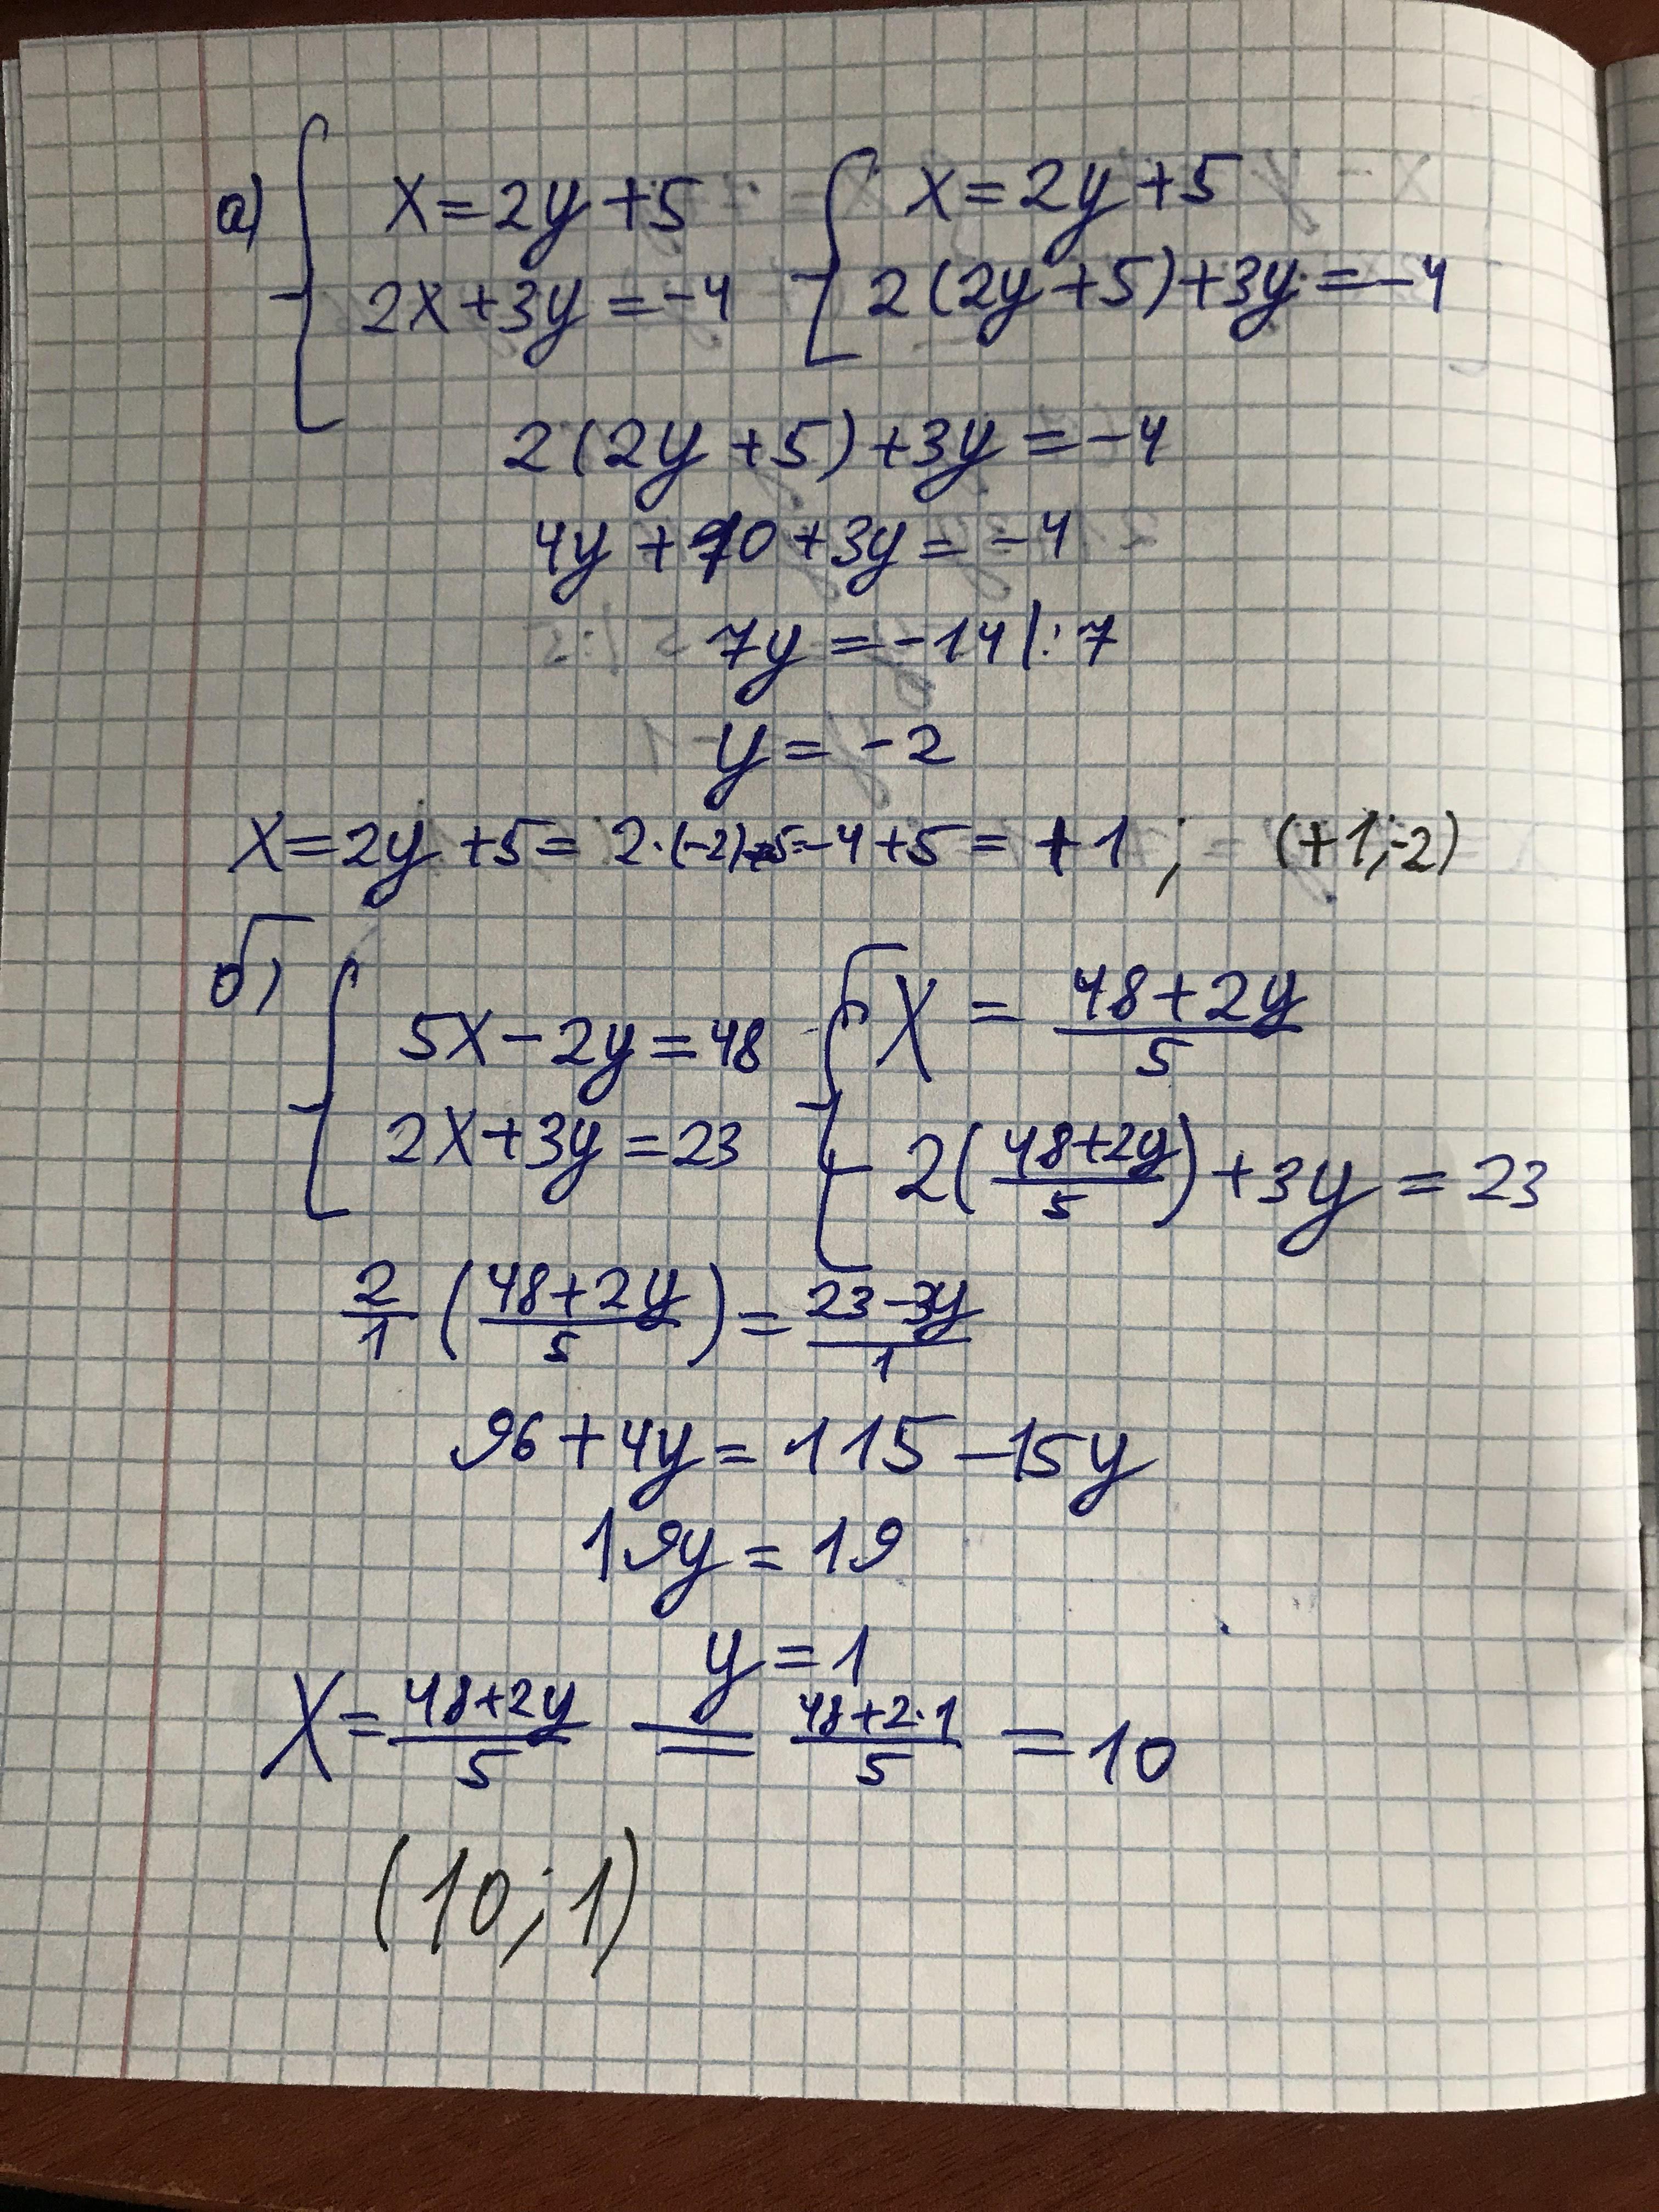 а) { x=2y+5 { x=2y+5
2x+3y=-4 2(2y+5)+3y=-4
2(2y+5)+3y=-4
4y+10+3y=-4
7y=-14|:7
y=-2
x=2y+5=2·(-2)+5=-4+5=+1; (+1;-2)
б) { 5x-2y=48 { x=\frac{48+2y}{5}
2x+3y=23 2(\frac{48+2y}{5})+3y=23
\frac{2}{1}(\frac{48+2y}{5})=\frac{23-3y}{1}
96+4y=115-15y
19y=19
y=1
x=\frac{48+2y}{5}=\frac{48+2·1}{5}=10
(10;1)